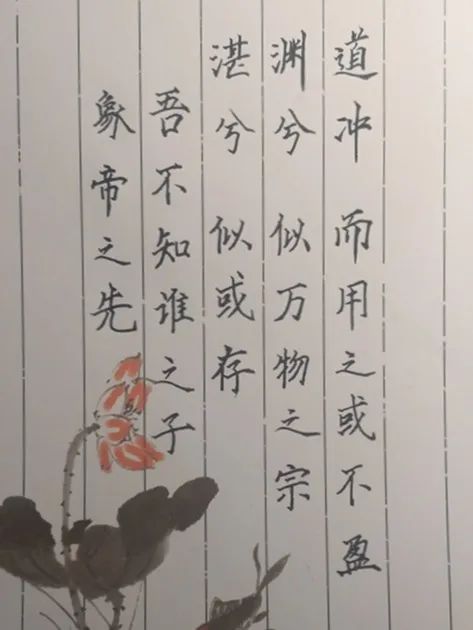 道冲 而用之或不盈
渊兮 似万物之宗
湛兮 似或存
吾不知谁之子
象帝之先